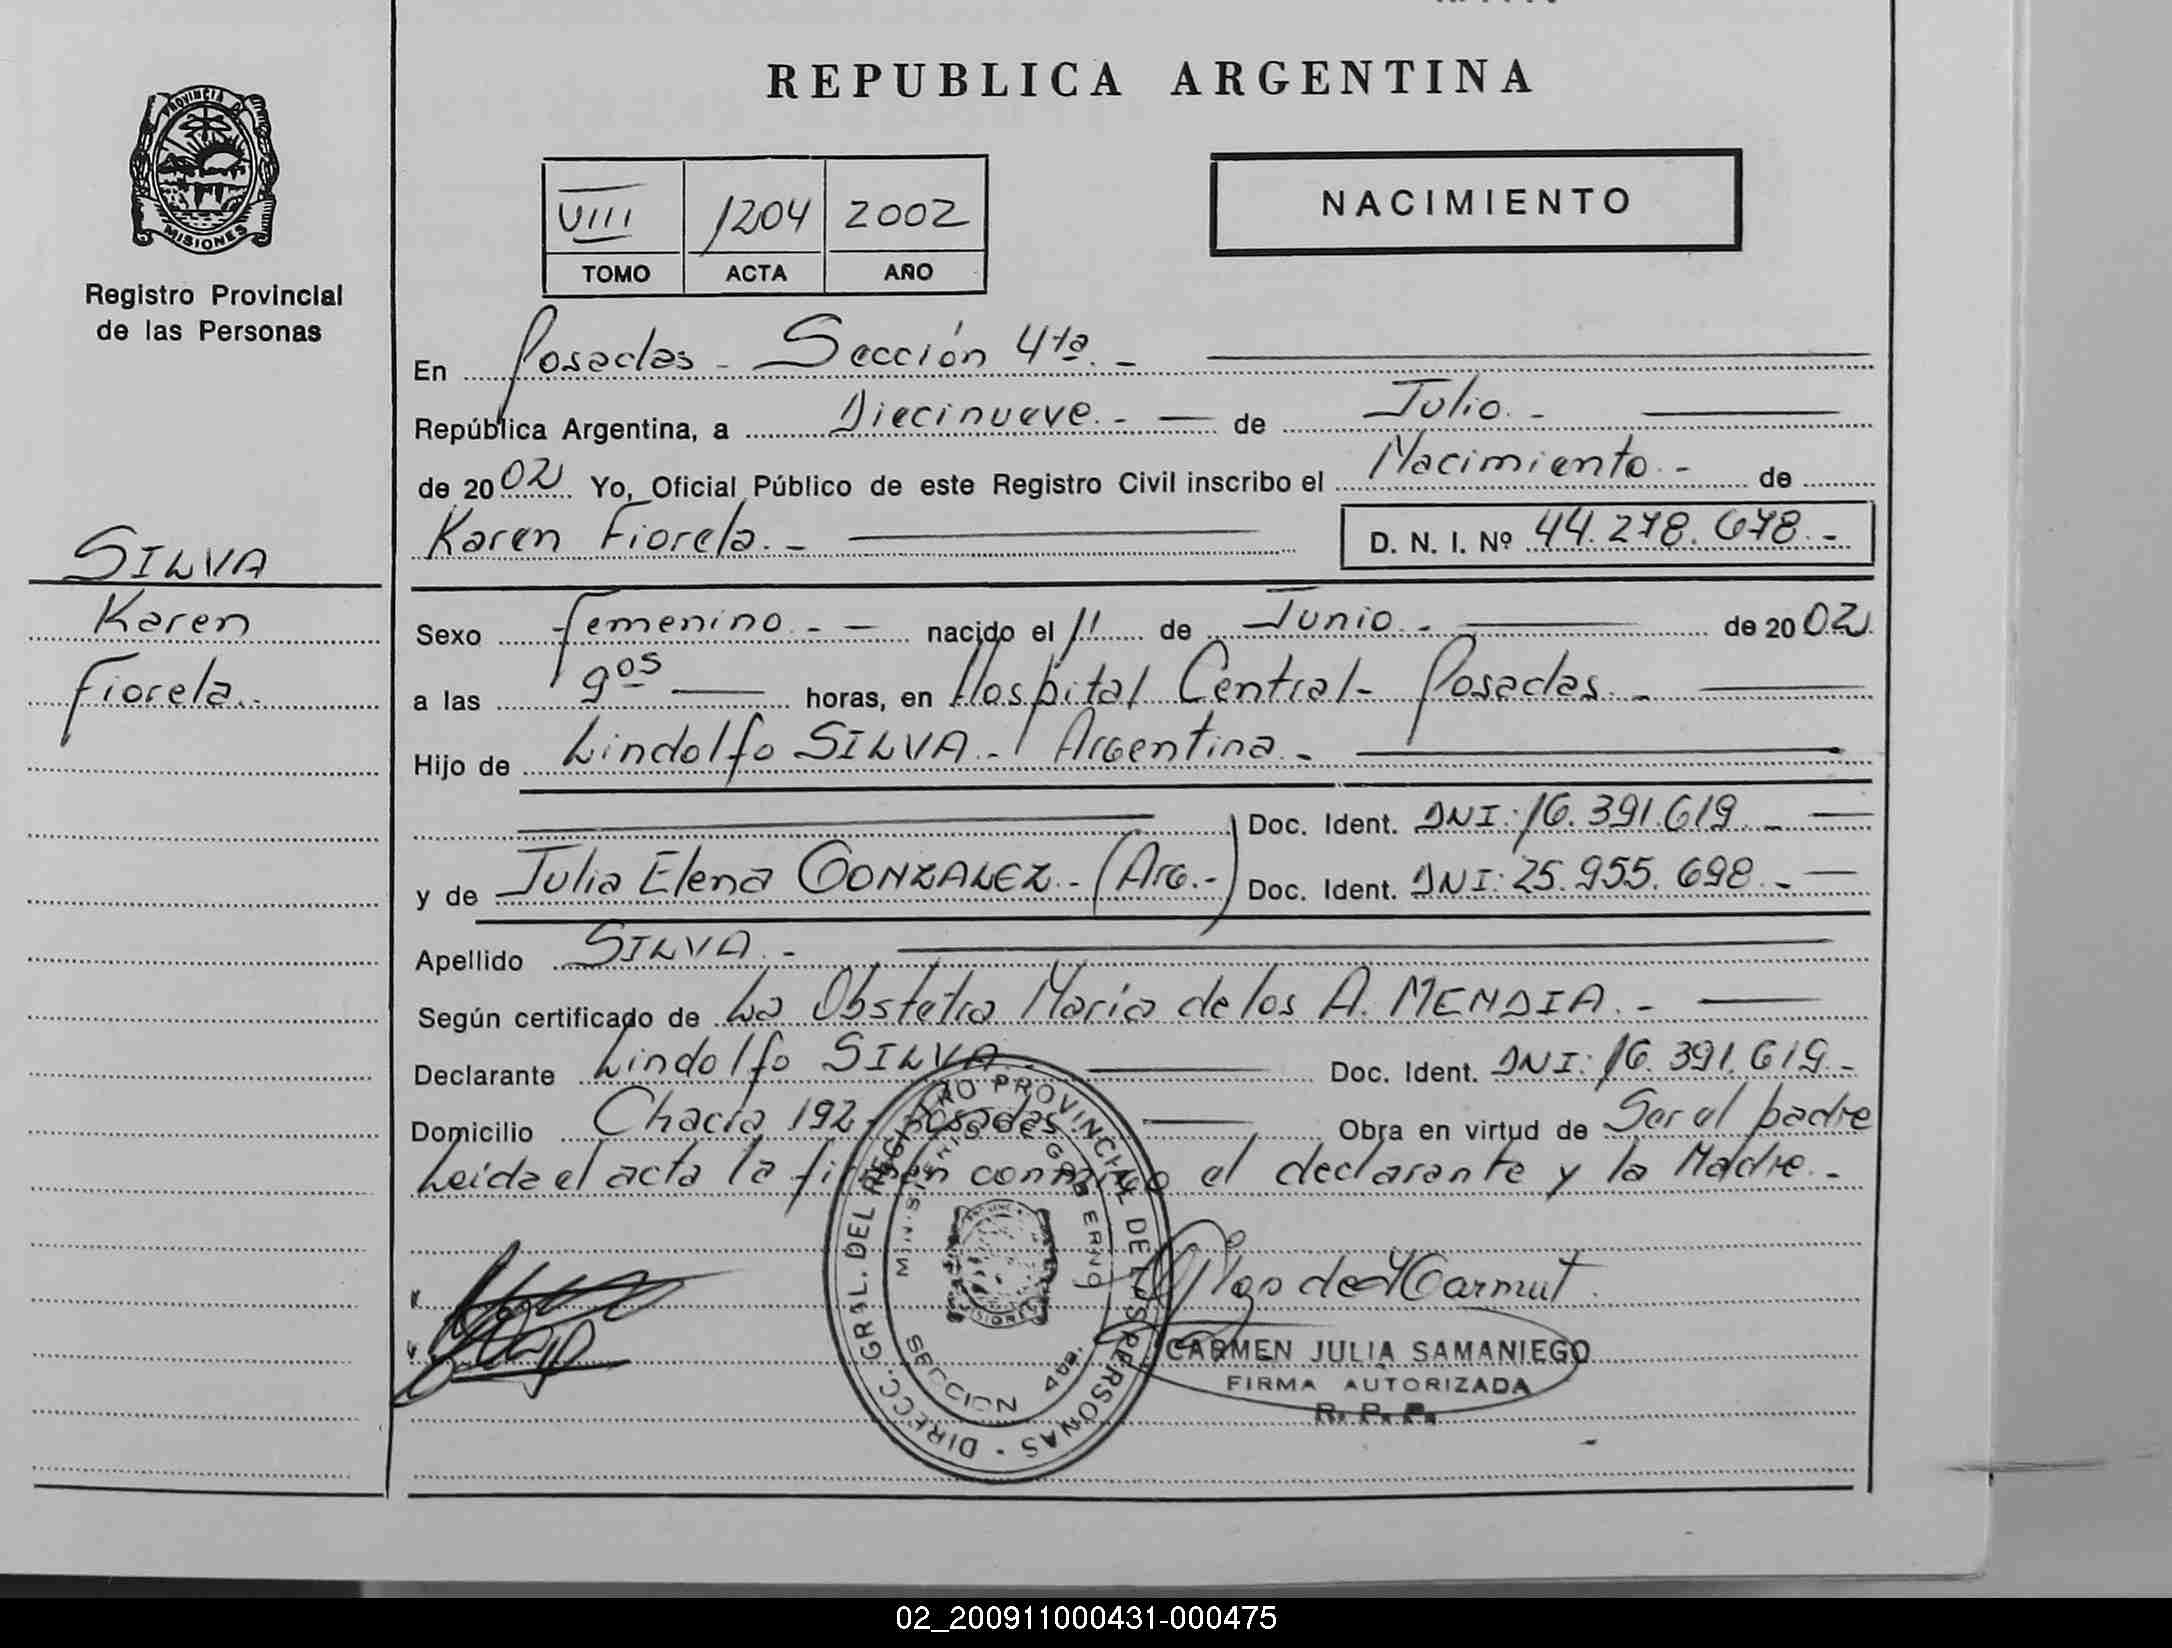 REPUBLICA ARGENTINA
PROVINCIA D
MISIONES
Registro Provincial
de las Personas
VIII 1204 2002
TOMO ACTA AÑO
NACIMIENTO
En Posadas - Sección 4ta. -
República Argentina, a Diecinueve. - de Julio. -
de 2002 Yo, Oficial Público de este Registro Civil inscribo el Nacimiento. - de
Karen Fiorela. - D. N. I. Nº 44.278.678. -
SILVA
Karen
Fiorela. -
Sexo femenino. - nacido el 11 de Junio. - de 2002
a las 9os horas, en Hospital Central - Posadas. -
Hijo de Lindolfo SILVA. - Argentina. -
Doc. Ident. DNI: 16.391.619. -
y de Julia Elena GONZALEZ. - (Arg. -) Doc. Ident. DNI: 25.955.698. -
Apellido SILVA. -
Según certificado de La Obstetra María de los A. MENDIA. -
Declarante Lindolfo SILVA. Doc. Ident. DNI: 16.391.619. -
Domicilio Chacra 192 - Posadas Obra en virtud de Ser el padre
Leída el acta la firman conmigo el declarante y la Madre. -
DIRECC. GRAL. DEL REGISTRO PROVINCIAL DE LAS PERSONAS
MINISTERIO GOBIERNO
SECCION 4ta.
CARMEN JULIA SAMANIEGO
FIRMA AUTORIZADA
R. P. P.
02_200911000431-000475